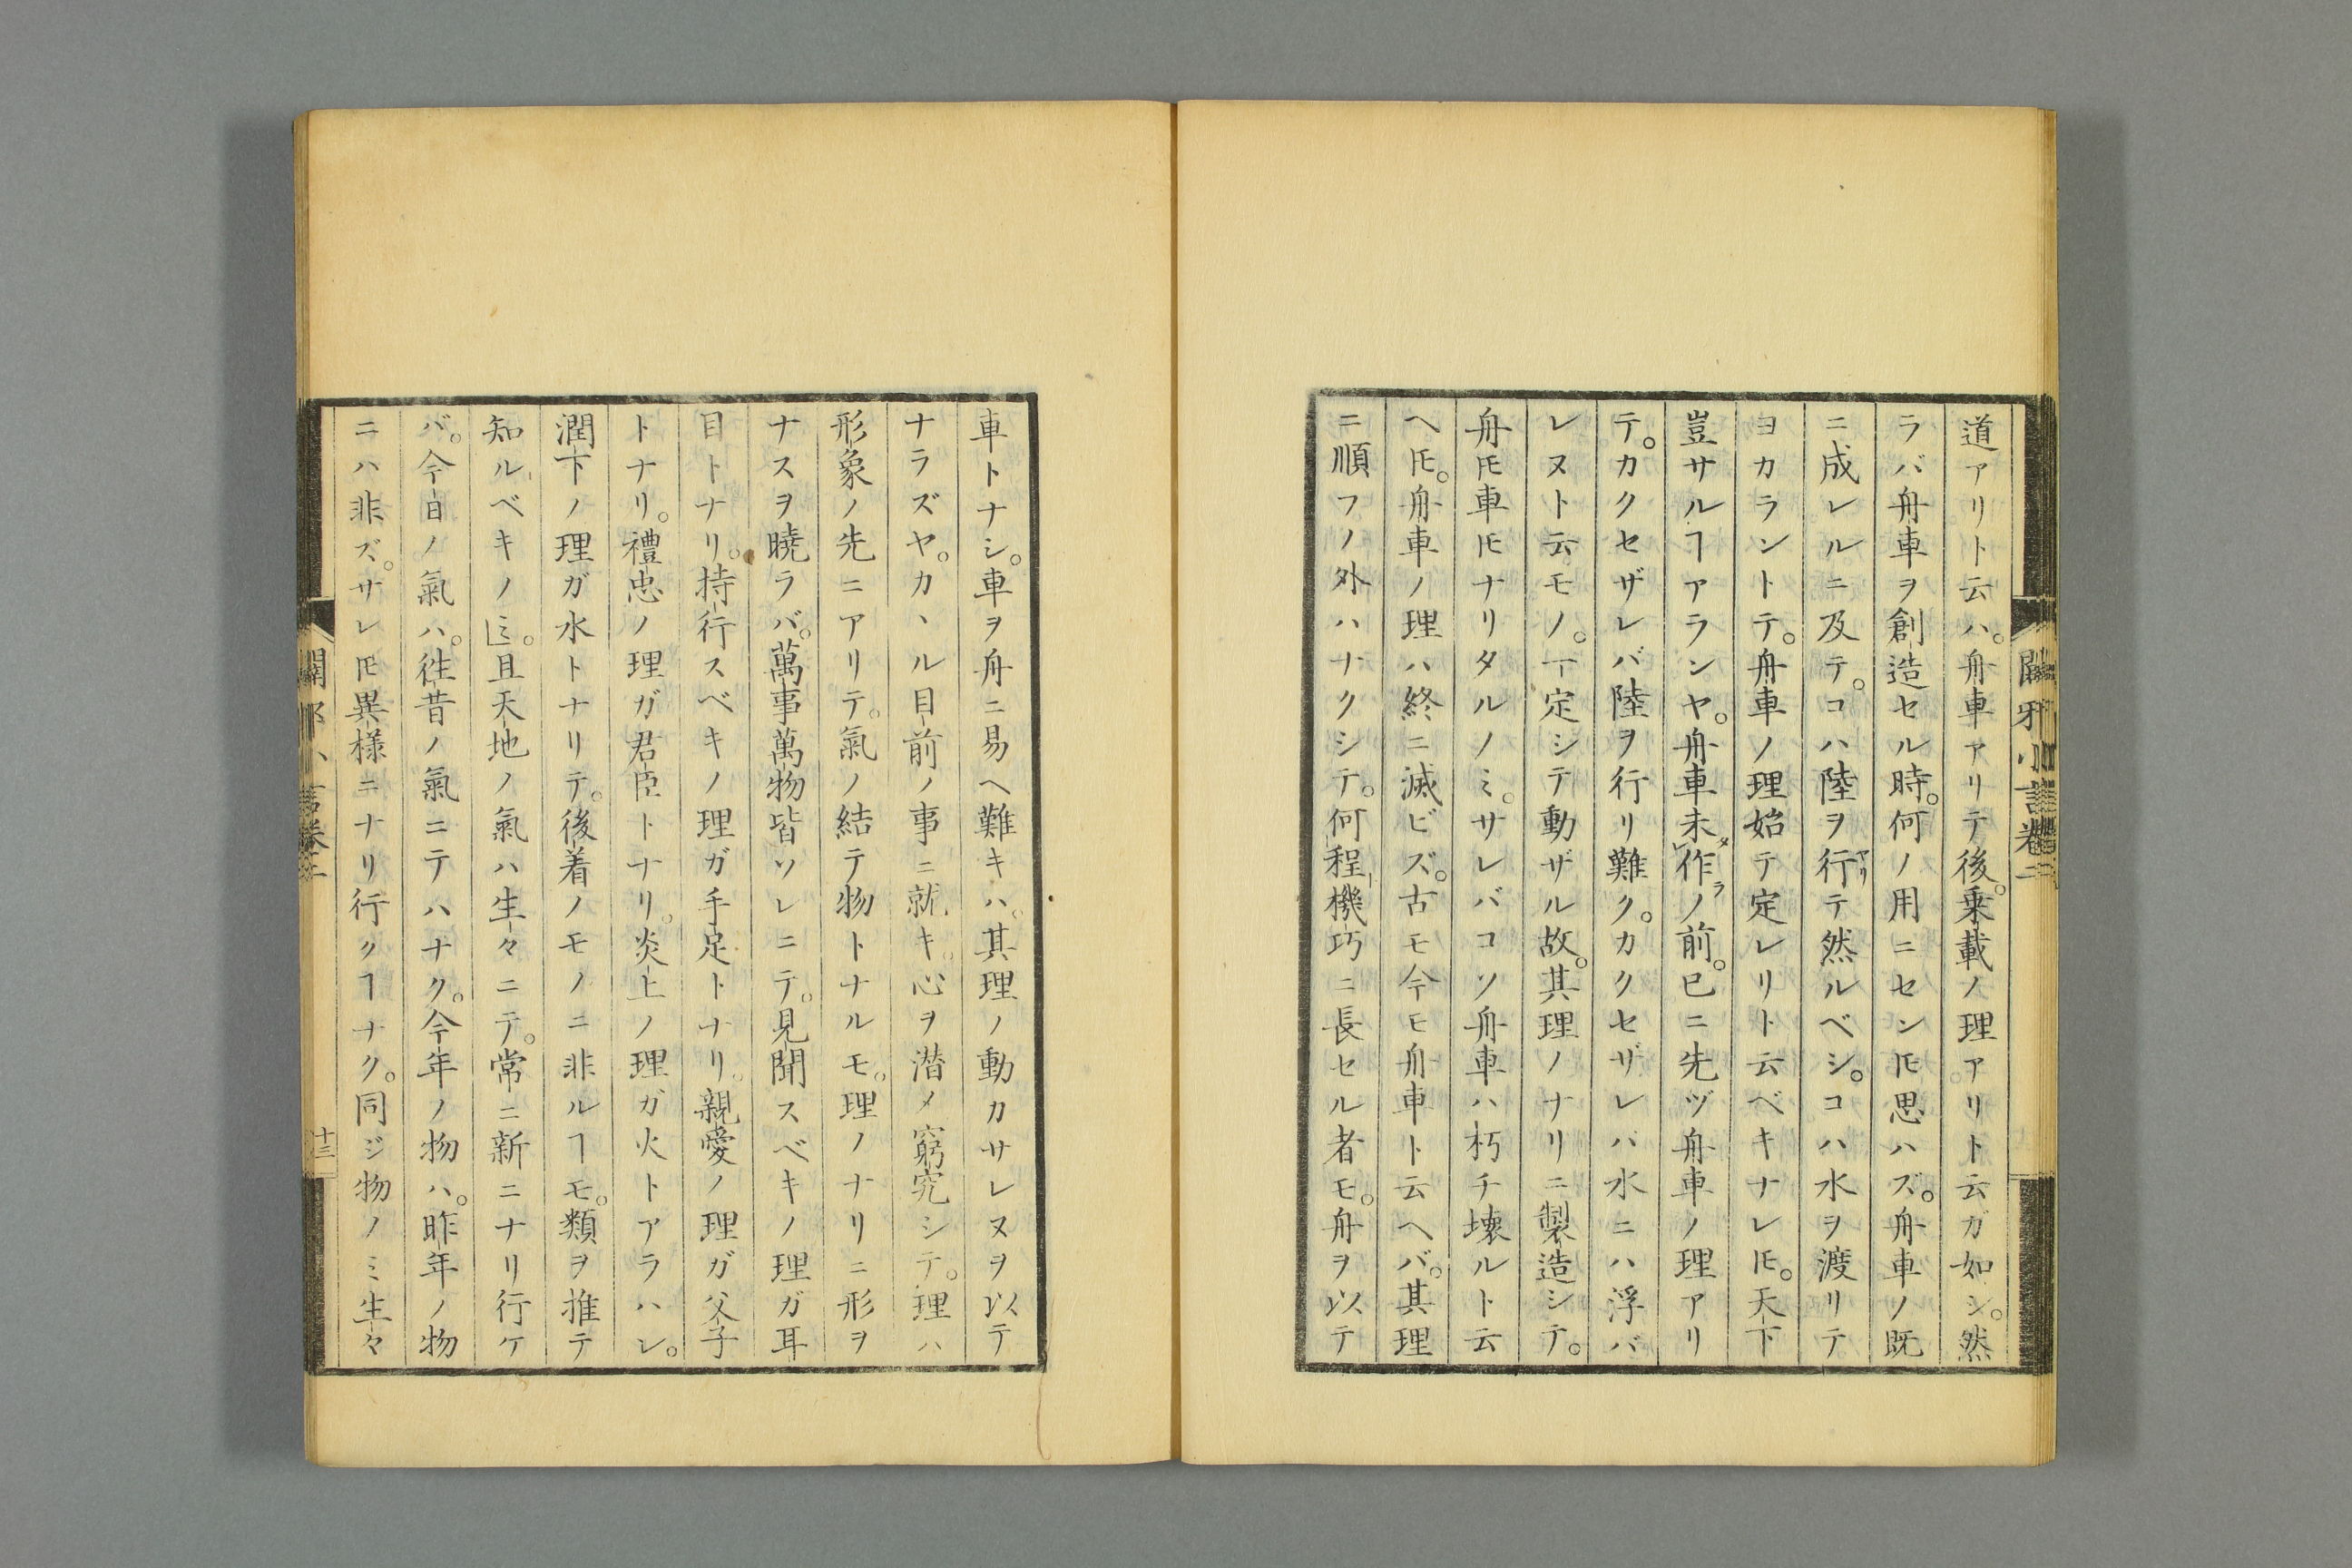 道アリト云ハ。舟車アリテ後。乗載ノ理アリト云ガ如シ。然
ラバ舟車ヲ創造セル時。何ノ用ニセンㇳモ思ハズ。舟車ノ既
ニ成レルニ及テ。コハ陸ヲ行テ然ルベシ。コハ水ヲ渡リテ
ヨカラントテ。舟車ノ理始テ定レリト云ベキナレ𪜈。天下
豈サルヿアランヤ。舟車未作ノ前。已ニ先ヅ舟車ノ理アリ
テ。カクセザレバ陸ヲ行リ難ク。カクセザレバ水ニハ浮バ
レヌト云モノ。一定シテ動ザル故。其理ノナリニ製造シテ。
舟𪜈車𪜈ナリタルノミ。サレバコソ舟車ハ朽チ壊ルト云
ヘ𪜈。舟車ノ理ハ終ニ滅ビズ。古モ今モ舟車ト云ヘバ。其理
ニ順フノ外ハナクシテ。何程機巧ニ長セル者モ。舟ヲ以テ
闢邪小言卷二
車トナシ。車ヲ舟ニ易ヘ難キハ。其理ノ動カサレヌヲ以テ
ナラズヤ。カヽル目前ノ事ニ就キ。心ヲ潜メ窮究シテ。理ハ
形象ノ先ニアリテ。氣ノ結テ物トナルモ。理ノナリニ形ヲ
ナスヲ曉ラバ。萬事萬物皆ソレニテ。見聞スベキノ理ガ耳
目トナリ。持行スベキノ理ガ手足トナリ。親愛ノ理ガ父子
トナリ。禮忠ノ理ガ君臣トナリ。炎上ノ理ガ火トアラハレ。
潤下ノ理ガ水トナリテ。後着ノモノニ非ルヿモ。類ヲ推テ
知ルベキノミ。且天地ノ氣ハ生々ニテ。常ニ新ニナリ行ケ
バ。今日ノ氣ハ。徃昔ノ氣ニテハナク。今年ノ物ハ。昨年ノ物
ニハ非ズ。サレ𪜈異樣ニナリ行クヿナク。同ジ物ノミ生々
十三